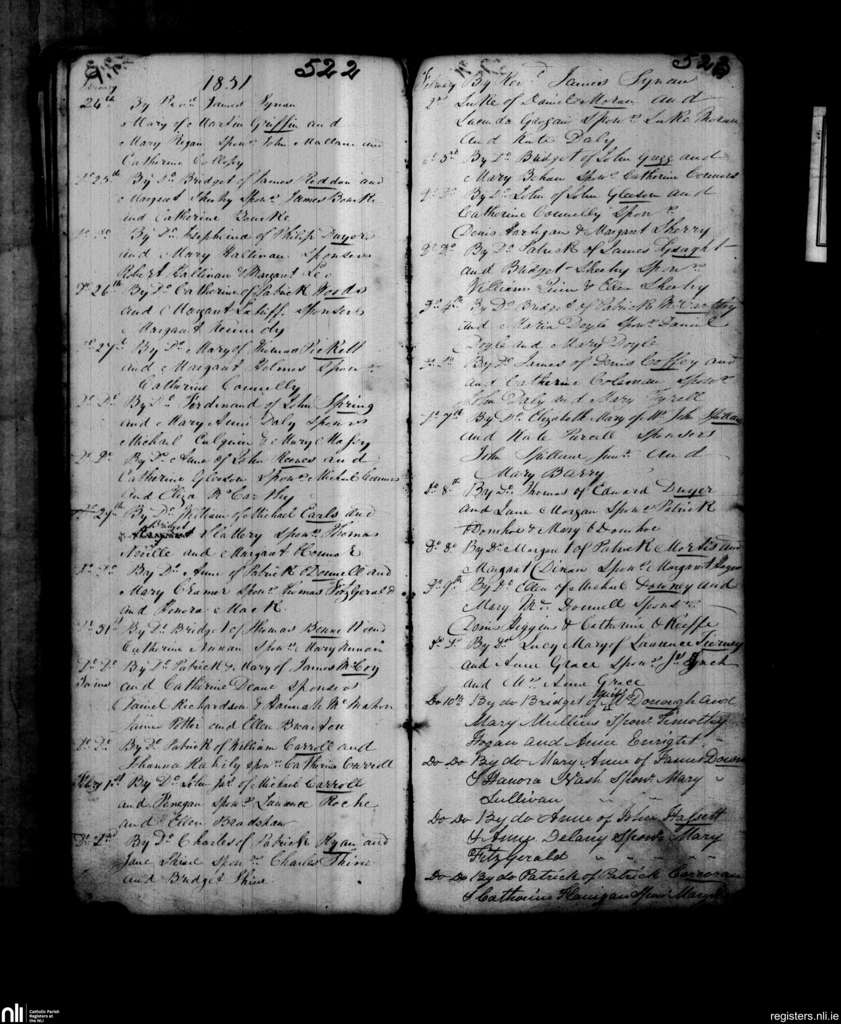 1831 522
24th By Revd. James Synan
Mary of Martin Griffin and
Mary Regan Spon. John Mallane and
Catherine Collopy
Do 25th By Do Bridget of James Reddon and
Margaret Sheehy Spon. James Bourke
and Catherine Bourke
Do Do By Do Josephine of Philip Dwyer
and Mary Hallinan Sponsors
Robert Hallinan & Margaret Lee
Do 26th By Do Catherine of Patrick Woods
and Margaret Sponsors
Margaret Kennedy
Do 27th By Do Mary of Thomas Pickett
and Margaret Holmes Spon
Catherine Connelly
Do Do By Do Ferdinand of John Spring
and Mary Anne Daly Sponsors
Michael & Mary
Do Do By Do Anne of John and
Catherine Gleeson Spon. Michael
and Eliza McCarthy
Do 29th By Do William of Michael Earls and
Bridget
Slattery Spon. Thomas
Neville and Margaret
Do Do By Do Anne of Patrick ODonnell and
Mary Cramer Spon. Thomas FitzGerald
and Honora Mack
Do 31st By Do Bridget of Thomas Bennett and
Catherine Noonan Spon. Mary
Do Do By Do Patrick & Mary of James McCoy
Twins and Catherine Deane Sponsors
Daniel Richardson & Hannah McMahon
James Potter and Ellen
Do Do By Do Patrick of William Carroll and
Johanna Spon. Catherine Carroll
Feby 1st By Do John Jas. of Michael Carroll
and Finegan Spon. Laurence Roche
and Ellen Bradshaw
Do 2nd By Do Charles of Patrick Ryan and
Jane Shine Spon. Charles Shine
and Bridget Shine
523
By Revd. James Synan
Luke of Daniel Moran and
Lucinda Spon. Luke Moran
and Kate Daly
Do 3d By Do Bridget of John and
Mary Behan Spon. Catherine Connors
Do Do By Do John of John Gleeson and
Catherine Connelly Spon
Denis Hartigan & Margaret Sherry
Do Do By Do Patrick of James Lysaght
and Bridget Sheehy Spon
William & Ellen Sheehy
Do 4th By Do Bridget of Patrick McCarthy
and Maria Doyle Spon. Daniel
Doyle and Mary Doyle
Do Do By Do James of Denis Coffey and
and Catherine Coleman Spon
John Daly and Mary Tyrell
Do 7th By Do Elizabeth Mary of Mr. John Spillane
and Kate Purcell Sponsors
John Spillane Junr. and
Mary Barry
Do 8th By Do Thomas of Edward Dwyer
and Jane Morgan Spon. Patrick
Donohoe & Mary Donohoe
Do Do By Do Margaret of Patrick and
Margaret Dinan Spon. Margaret
Do 9th By Do Ellen of Michael Downey and
Mary McDonnell Spons
Denis Higgins & Catherine OKeeffe
Do Do By Do Lucy Mary of Laurence Tierney
and Anne Grace Spon. Jas. Lynch
and Mrs. Anne Grace
Do 10th By do Bridget of McDonough and
Mary Mullins Spon. Timothy
Hogan and Anne Enright
Do Do By do Mary Anne of James
& Hanora Nash Spon. Mary
Sullivan
Do Do By do Anne of John Hassett
& Anne Delany Spon. Mary
Fitzgerald
Do Do By do Patrick of Patrick Corcoran
& Catherine Flanigan Spon. Mary
nli
Catholic Parish
Registers at
the NLI
registers.nli.ie